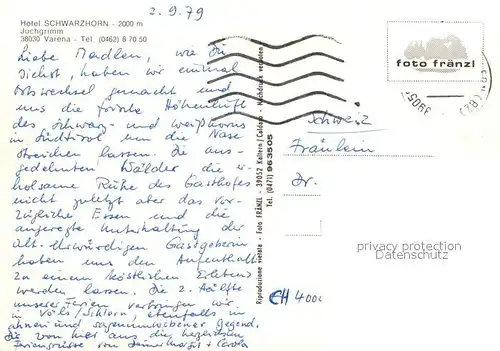 2.9.79
Hotel SCHWARZHORN - 2000 m
Jochgrimm
38030 Varena - Tel. (0462) 8 70 50
Liebe Madlen, wie Du
siehst, haben wir einmal
Ortswechsel gemacht und
uns die frische Höhenluft
des Schwarz- und Weißhorns
in Südtirol um die Nase
streichen lassen. Die aus-
gedehnten Wälder die er-
holsame Ruhe des Gasthofes
nicht zuletzt aber das vor-
zügliche Essen und die
angeregte Unterhaltung der
Alt-Ehrwürdigen Gastgeberin
haben uns den Aufenthalt
zu einem köstlichen Erlebnis
werden lassen. Die 2. Hälfte
unserer Ferien verbringen wir
in Völs/Schlern, ebenfalls in
schönen und sagenumwobener Gegend.
Die von hier aus die herzlichsten
Feriengrüsse von Deiner Margit + Carola
Riproduzione vietata - Foto FRÄNZL - 39052 Kaltern/Caldaro - Nachdruck verboten
Tel. (0471) 963505
foto fränzl
39057
Schweiz
Fräulein
Dr.
CH 4000
privacy protection
Datenschutz